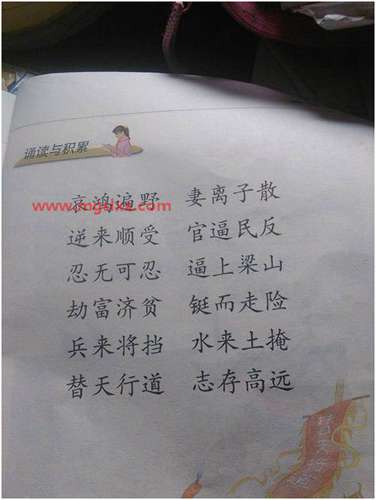 诵读与积累
哀鸿遍野 妻离子散
逆来顺受 官逼民反
忍无可忍 逼上梁山
劫富济贫 铤而走险
兵来将挡 水来土掩
替天行道 志存高远